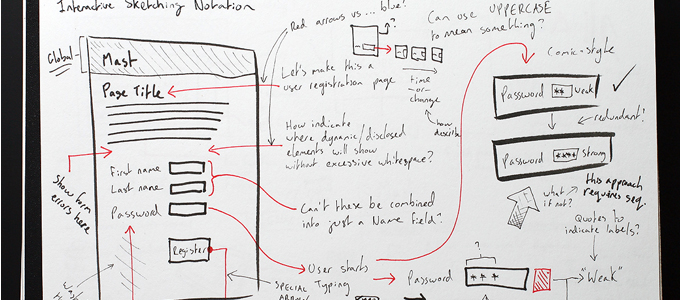 Interactive Sketching Notation
Global
Mast
Page Title
First name
Last name
Password
Register
Show form
errors here
Red arrows vs ... blue?
?
Let's make this a
user registration page
time
-or-
change
how
describe
How indicate
where dynamic/disclosed
elements will show
without excessive whitespace?
Can't these be combined
into just a Name field?
User starts
SPECIAL
Typing
Password
* * *
?
"Weak"
Can use UPPERCASE
to mean something?
Comic-style
Password ** weak
redundant?
Password **** strong
what
if not?
this approach
requires seq.
Quotes to
indicate labels?